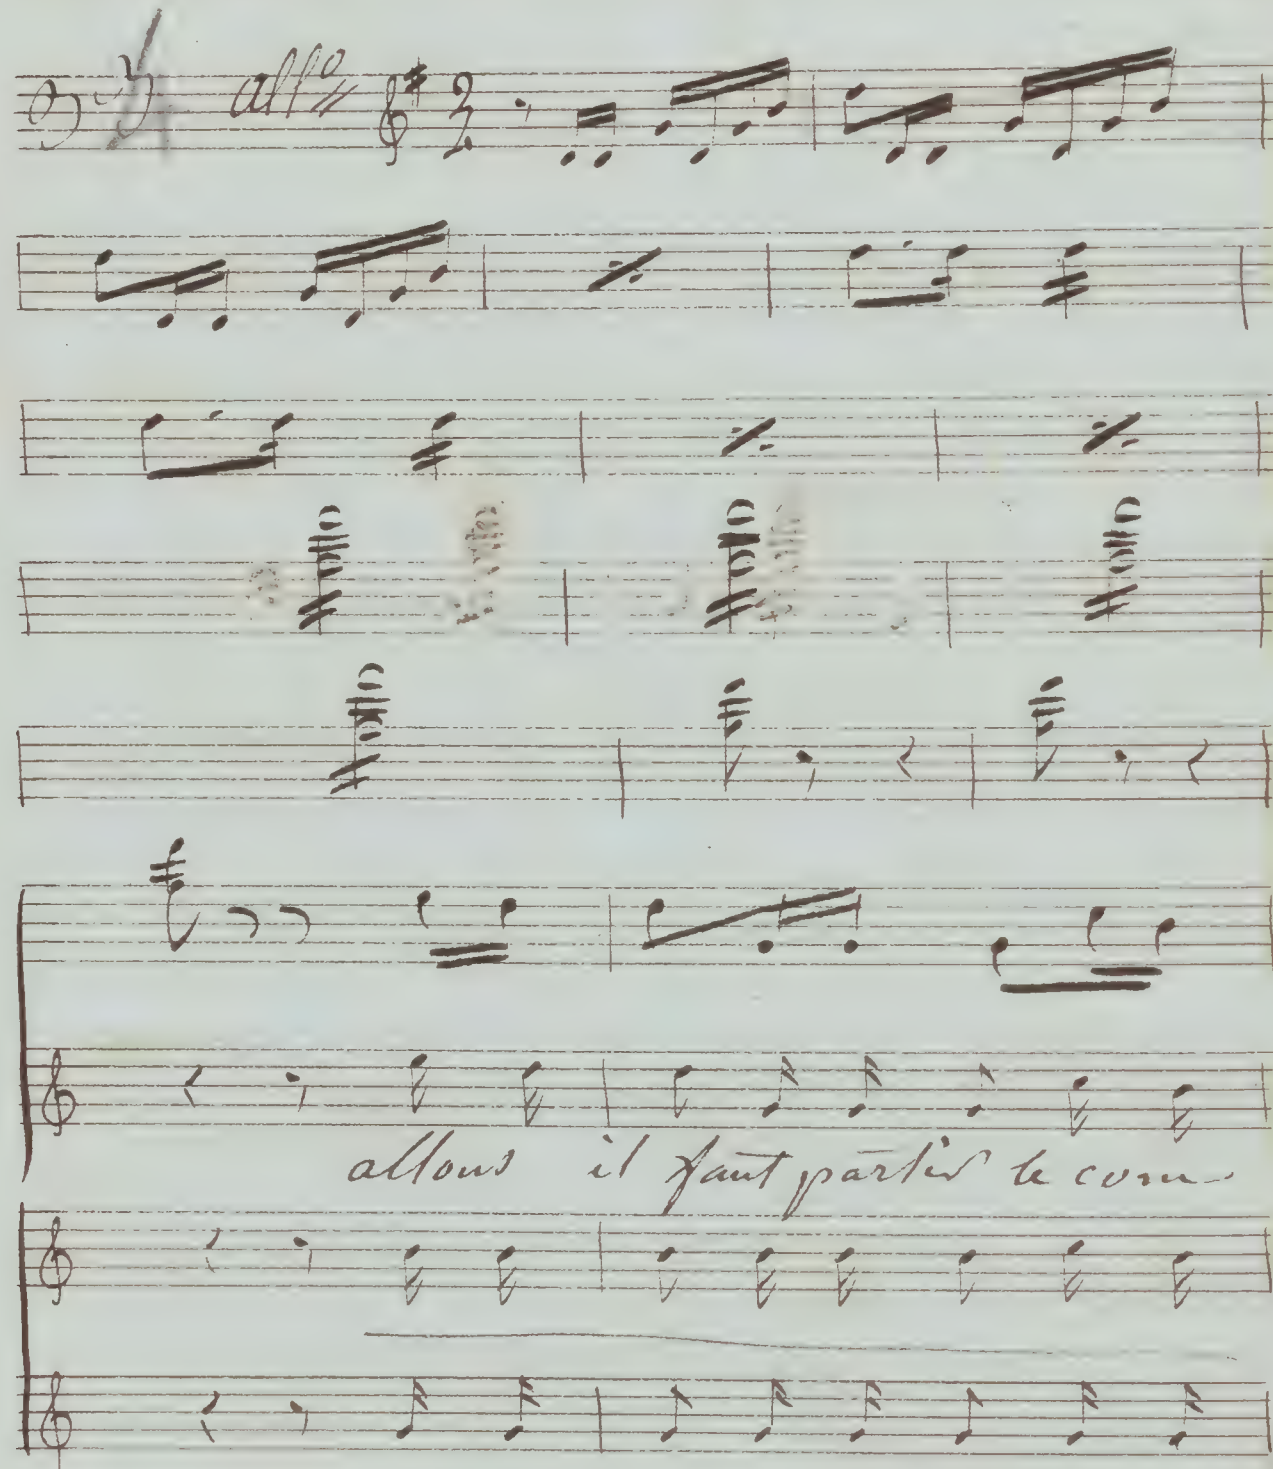 all° 2
allons il faut partir le com-